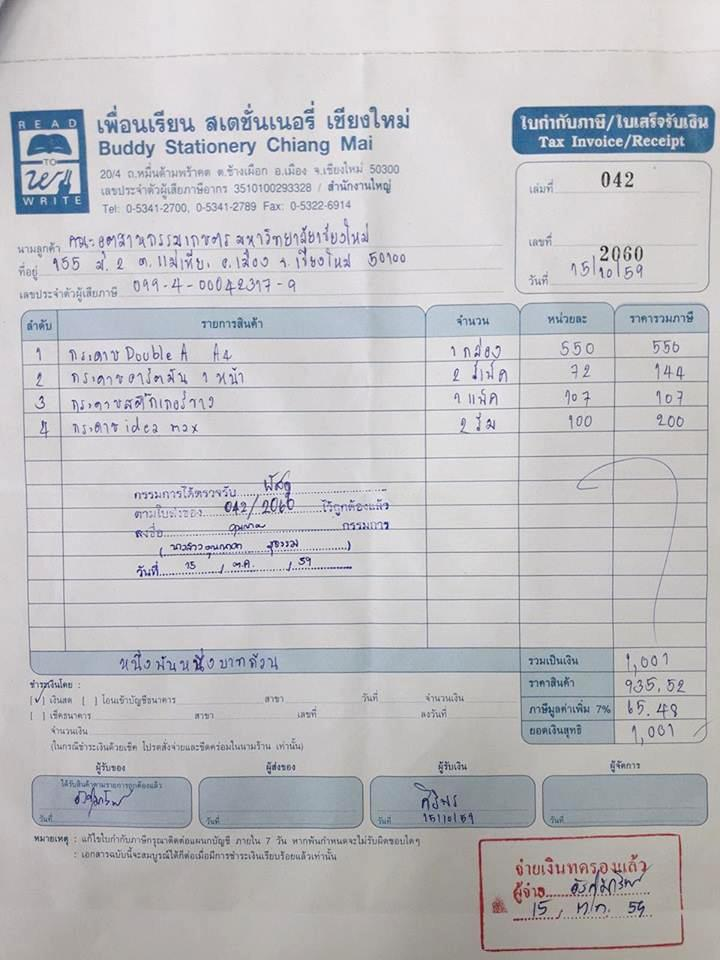 READ
TO
WRITE
เพื่อนเรียน สเตชั่นเนอรี่ เชียงใหม่
Buddy Stationery Chiang Mai
20/4 ถ.หมื่นด้ามพร้าคต ต.ช้างเผือก อ.เมือง จ.เชียงใหม่ 50300
เลขประจำตัวผู้เสียภาษีอากร 3510100293328 / สำนักงานใหญ่
Tel: 0-5341-2700, 0-5341-2789 Fax: 0-5322-6914
ใบกำกับภาษี/ใบเสร็จรับเงิน
Tax Invoice/Receipt
เล่มที่ 042
เลขที่ 2060
วันที่ 15/10/59
นามลูกค้า คณะอุตสาหกรรมเกษตร มหาวิทยาลัยเชียงใหม่
ที่อยู่ 155 ม.2 ต.แม่เหียะ อ.เมือง จ.เชียงใหม่ 50100
เลขประจำตัวผู้เสียภาษี 099-4-00042317-9
ลำดับ รายการสินค้า จำนวน หน่วยละ ราคารวมภาษี
1 กระดาษ Double A A4 1 กล่อง 550 550
2 กระดาษอาร์ตมัน 1 หน้า 2 แพ็ค 72 144
3 กระดาษสติ๊กเกอร์ 1 แพ็ค 107 107
4 กระดาษ idea max 2 รีม 100 200
กรรมการได้ตรวจรับ พัสดุ
ตามใบส่งของ 042/2060 ไว้ถูกต้องแล้ว
ลงชื่อ กรรมการ
วันที่ 15 / ต.ค. / 59
หนึ่งพันหนึ่งบาทถ้วน
รวมเป็นเงิน 1,001
ราคาสินค้า 935.52
ภาษีมูลค่าเพิ่ม 7% 65.48
ยอดเงินสุทธิ 1,001
ชำระเงินโดย :
[✓] เงินสด [ ] โอนเข้าบัญชีธนาคาร สาขา วันที่ จำนวนเงิน
[ ] เช็คธนาคาร สาขา เลขที่ ลงวันที่
จำนวนเงิน
(ในกรณีชำระเงินด้วยเช็ค โปรดสั่งจ่ายและขีดคร่อมในนามร้าน เท่านั้น)
ผู้รับของ ผู้ส่งของ ผู้รับเงิน ผู้จัดการ
ได้รับสินค้าตามรายการถูกต้องแล้ว
ศิริพร
วันที่ วันที่ วันที่ 15/10/59 วันที่
หมายเหตุ : แก้ไขใบกำกับภาษีกรุณาติดต่อแผนกบัญชี ภายใน 7 วัน หากพ้นกำหนดจะไม่รับผิดชอบใดๆ
: เอกสารฉบับนี้จะสมบูรณ์ได้ก็ต่อเมื่อมีการชำระเงินเรียบร้อยแล้วเท่านั้น
จ่ายเงินทดรองแล้ว
ผู้จ่าย
15 / ต.ค. 59